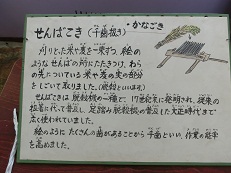 せんばこき（千歯扱き）
・かなごき
刈りとった米や麦を一束ずつ、絵の
ような せんばの所にたたきつけ、わら
の先についている米や麦の実の部分
をしごいて取りました。（脱穀といいます）
せんばこきは 脱穀機の一種で、17世紀末に発明され、従来の
扱箸に代って普及し、足踏み脱穀機の普及した大正時代まで
広く使われていました。
絵のように たくさんの歯があることから 千歯といい、作業の能率
を高めました。